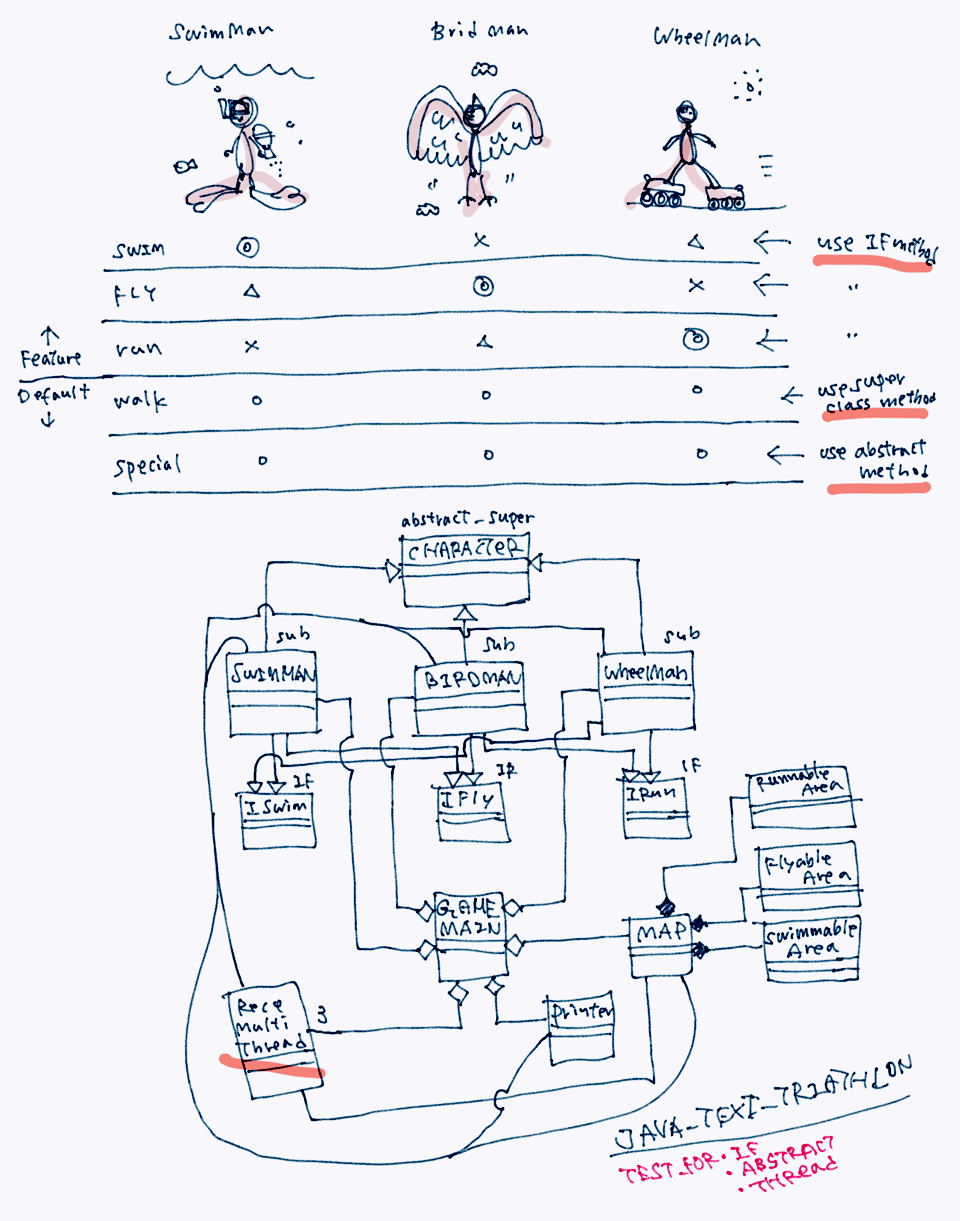 SwimMan
Brid man
Wheelman
SWIM ◎ × △ ← use IF method
FLY △ ◎ × ← "
↑
Feature
run × △ ◎ ← "
Default
↓
walk ○ ○ ○ ← use super class method
special ○ ○ ○ ← use abstract method
abstract_super
CHARACTER
sub
SWIMMAN
sub
BIRDMAN
sub
WheelMan
IF
ISwim
IR
IFly
IF
IRun
Runnable Area
Flyable Area
Swimmable Area
GAME
MAIN
MAP
Rece
Multi
Thread
3
Printer
JAVA_TEXT_TRIATHLON
TEST_FOR・IF
・ABSTRACT
・THReaD